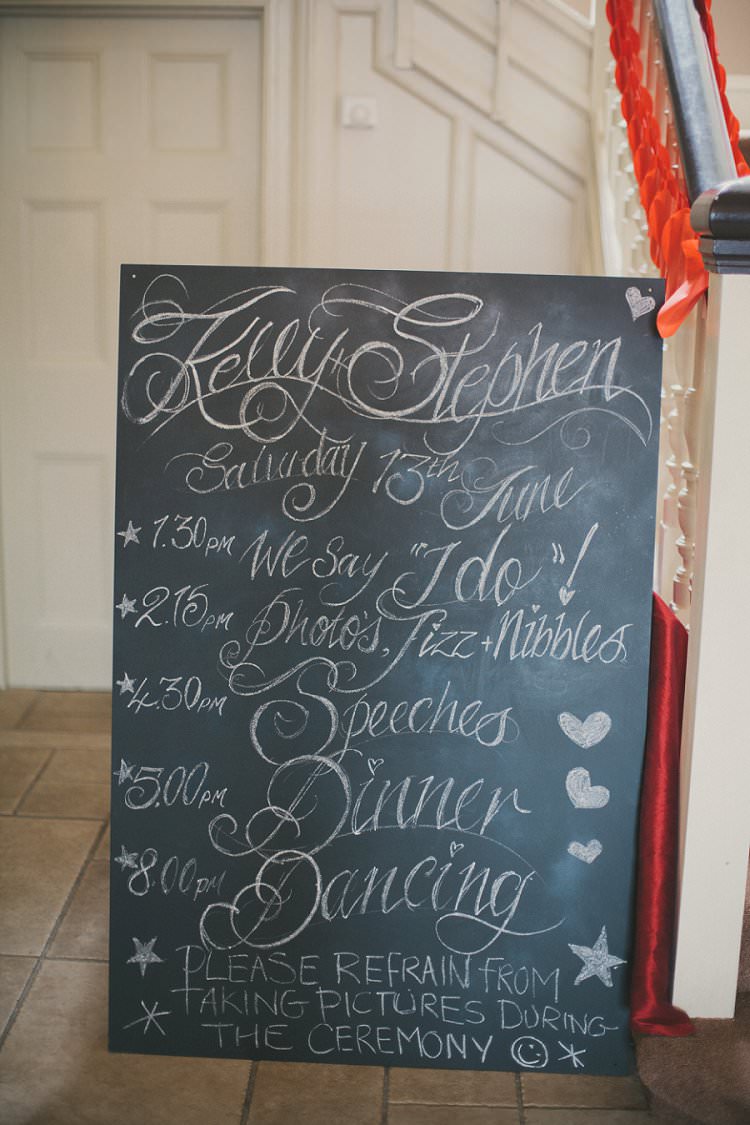 Kelly + Stephen
Saturday 13th June
1.30pm We Say "I do"!
2.15pm Photo's, Fizz + Nibbles
4.30pm Speeches
5.00pm Dinner
8.00pm Dancing
PLEASE REFRAIN FROM
TAKING PICTURES DURING
THE CEREMONY